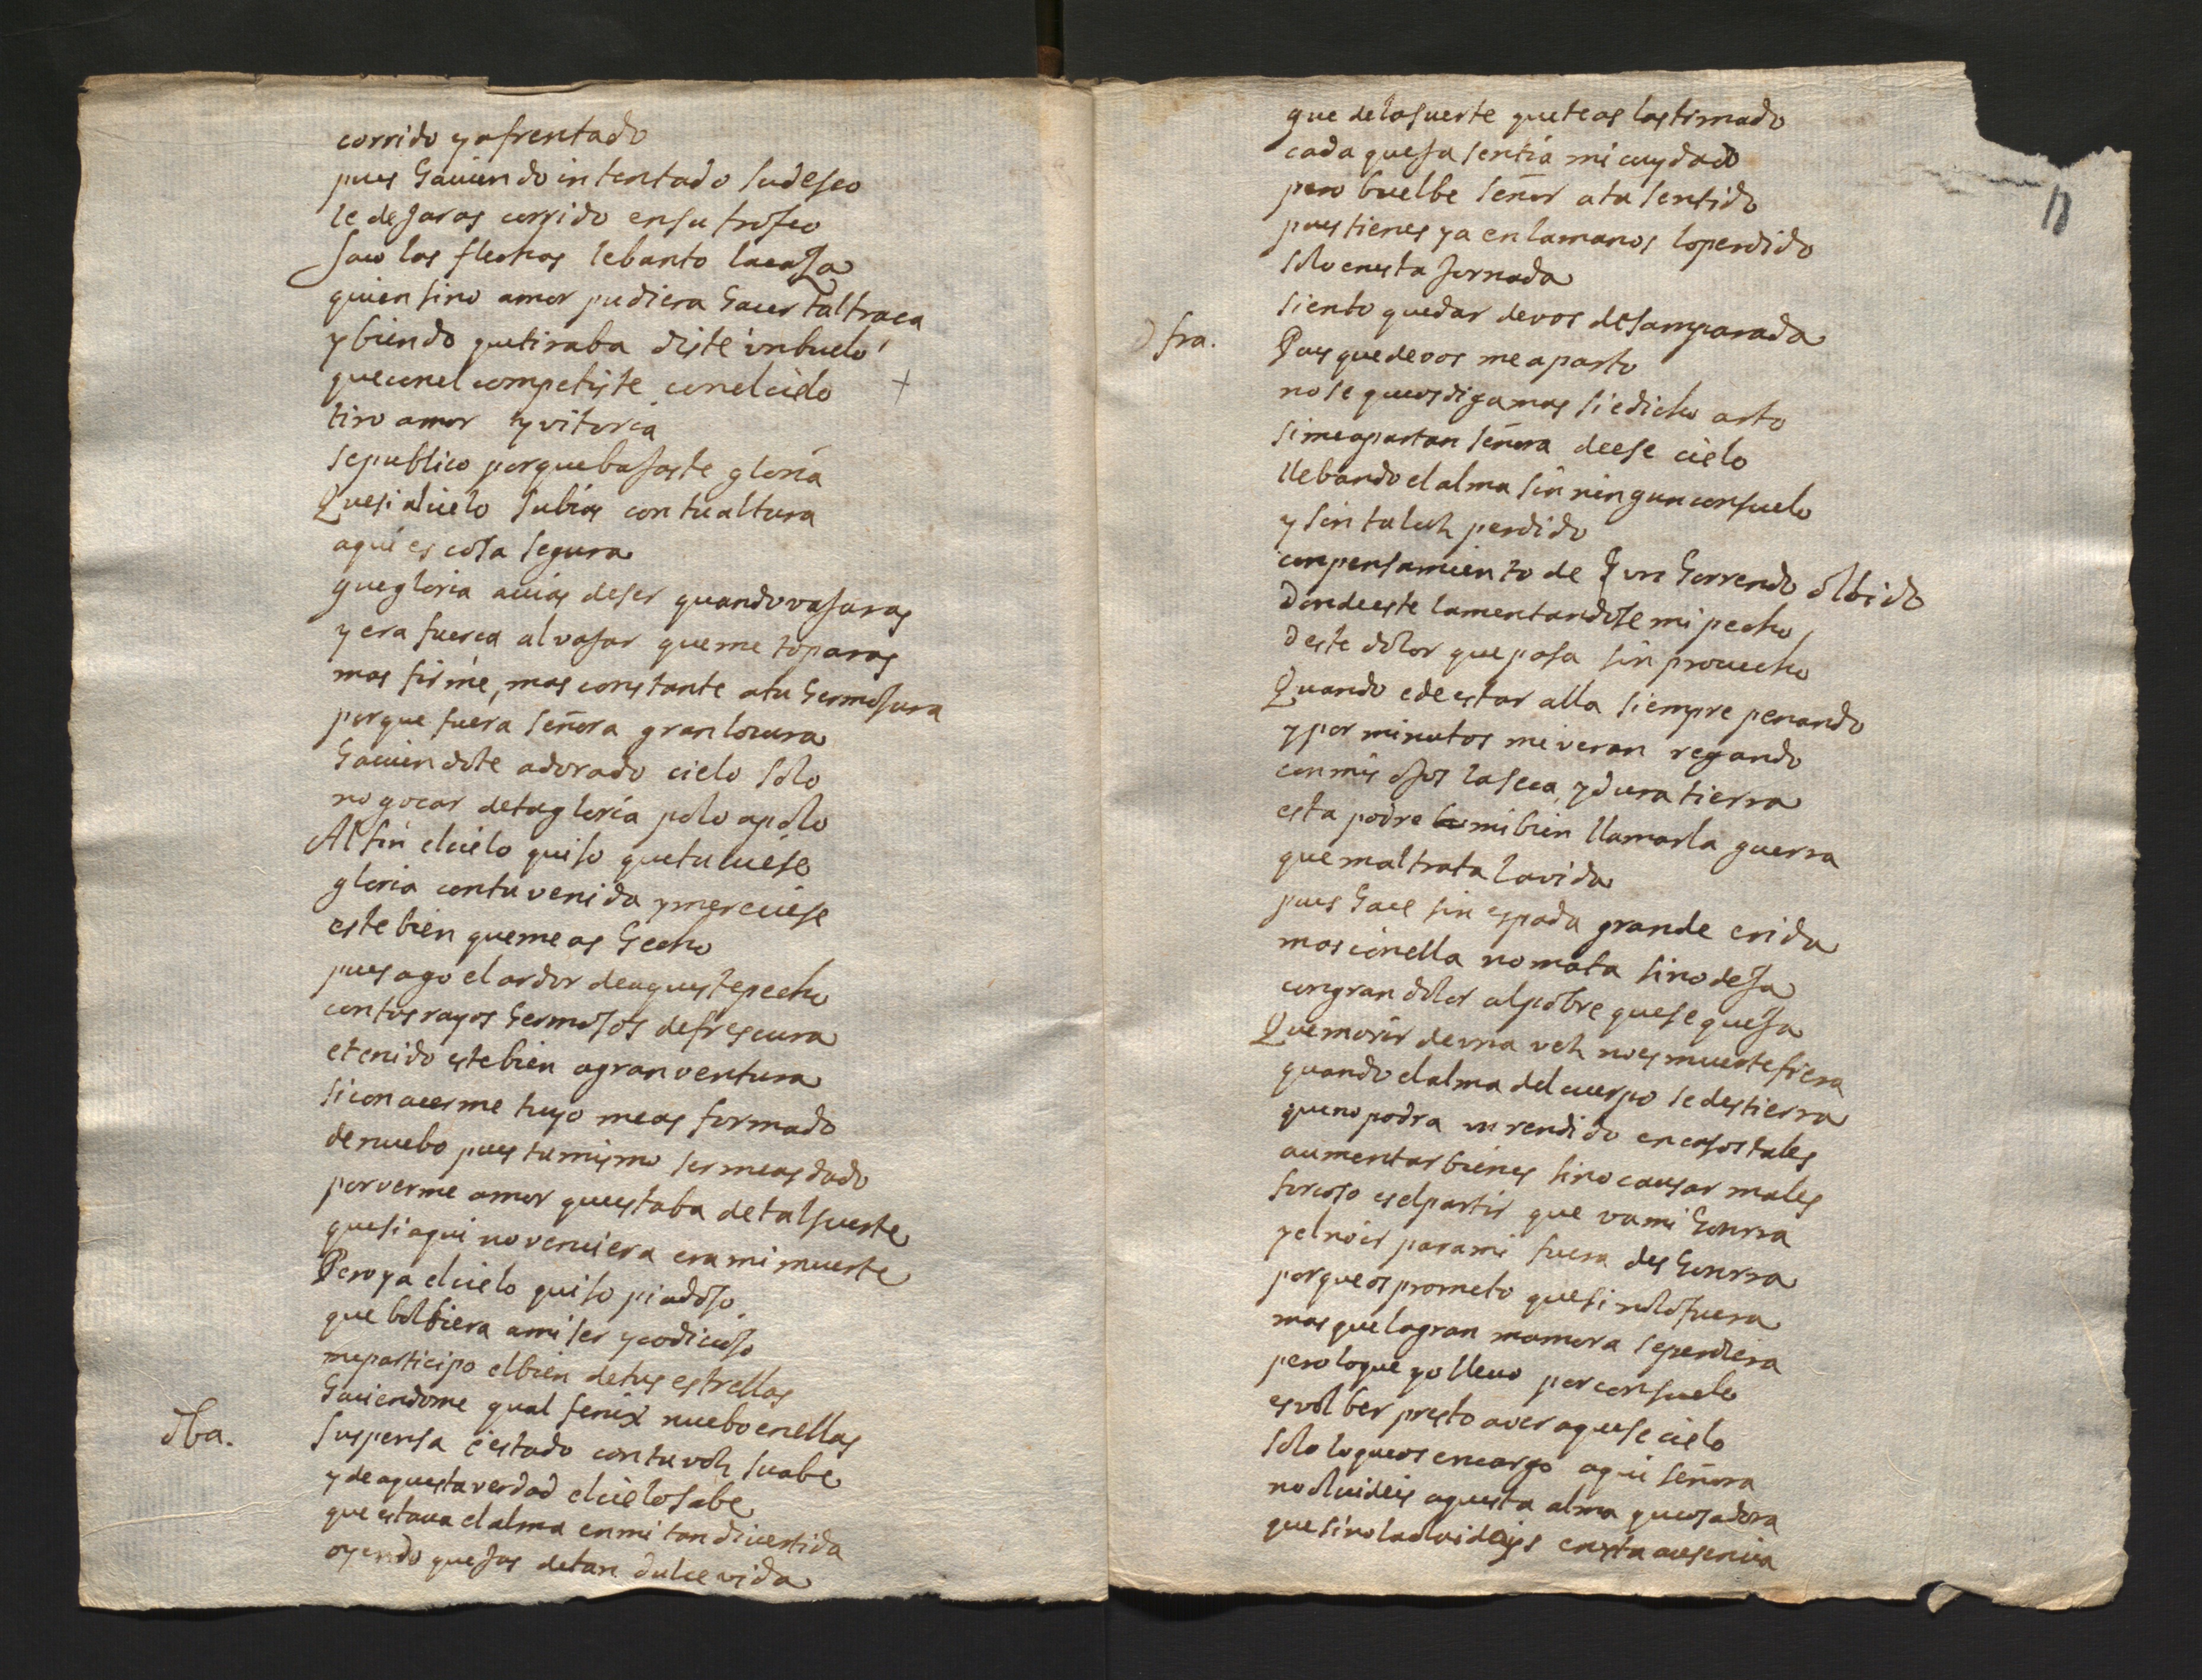 corrido y afrentado
pues hauiendo intentado su deseo
le dejaras corrido en su trofeo
saco las flechas lebanto la caja
quien sino amor pudiera hacer tal traça
y biendo que tiraba diste un buelo
que con el competiste con el cielo +
tiro amor y vitoria
se publico porque bajaste gloria
Que si al cielo subias con tu altura
aqui es cosa segura
que gloria auias de ser quando vajaras
y era fuerça al vajar que me toparas
mas firme, mas constante a tu hermosura
porque fuera señora gran locura
hauiendote adorado cielo solo
no goçar de tu gloria polo apolo
Al fin el cielo quiso que tuuiese
gloria con tu venida y mereciese
este bien que me as hecho
pues ago el ardor de aqueste pecho
con tus rayos hermosos de frescura
e tenido este bien a gran ventura
si con acerme tuyo me as formado
de nuebo pues tu mismo ser me as dado
por verme amor que estaba de tal suerte
que si aqui no veniera era mi muerte
Pero ya el cielo quiso piadoso
que bolbiera a mi ser y codicioso
me participo el bien de tus estrellas
haciendome qual fenix nuebo en ellas
Oba. suspensa e estado con tu voz suabe
y de aquesta verdad el cielo sabe
que estaua el alma en mi tan diuertida
oyendo quejas de tan dulce vida
18
que de la suerte que te as lastimado
cada queja sentia mi cuydado
pero buelbe señor a tu sentido
pues tienes ya en la manos lo perdido
solo en esta jornada
siento quedar de vos desamparada
fra. Pues que de vos me aparto
no se que os diga mas si e dicho arto
si me apartan señora de ese cielo
llebando el alma sin ningun consuelo
y sin tu luz perdido
con pensamiento de un horrendo olbido
donde este lamentandose mi pecho
deste dolor que pasa sin prouecho
Quando e de estar alla siempre penando
y por minutos me veran regando
con mis ojos la seca, y dura tierra
esta podre mi bien llamarla guerra
que maltrata la vida
pues hace sin espada grande erida
mas con ella no mata sino deja
con gran dolor al pobre que se queja
Que morir de una vez no es muerte fiera
quando el alma del cuerpo se destierra
que no podra un rendido en casos tales
aumentar bienes sino causar males
forcoso es el partir que va mi honrra
y el no ir para mi fuera deshonrra
porque os prometo que si no lo fuera
mas que la gran mamora se perdiera
pero lo que yo lleuo por consuelo
es volber presto a ver aquese cielo
solo lo que os encargo aqui señora
no oluideis aquesta alma que os adora
que si no la oluideys en esta ausencia